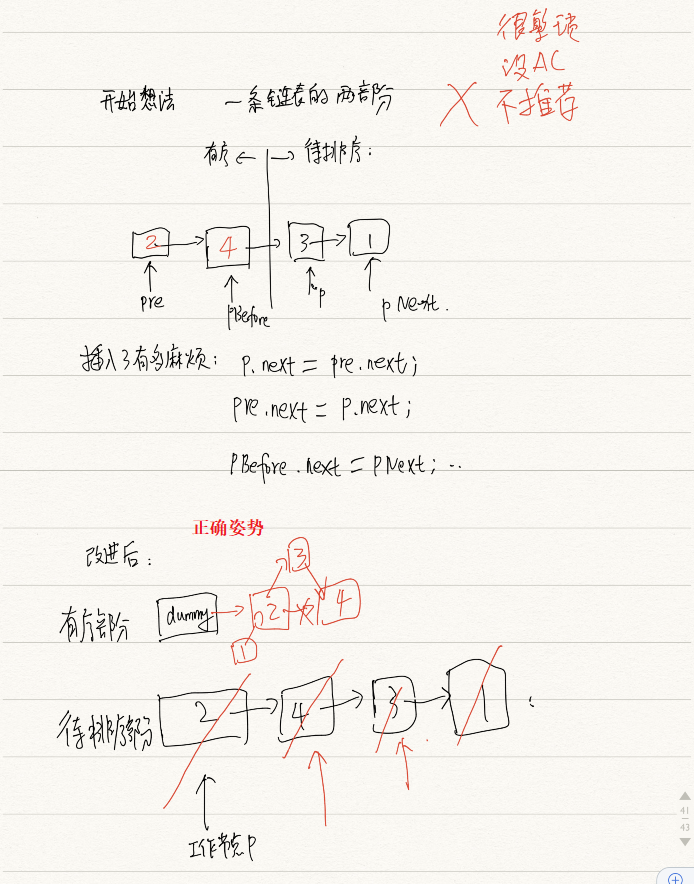 很繁琐
没AC
不推荐
开始想法 一条链表的两部分
有序 ← → 待排序:
2 4 3 1
pre pBefore p pNext.
插入3有多麻烦: p.next = pre.next;
pre.next = p.next;
pBefore.next = pNext; ..
正确姿势
改进后:
3
有序部分 dummy 2 4
1
待排序部分 2 4 3 1
工作节点P
41
43